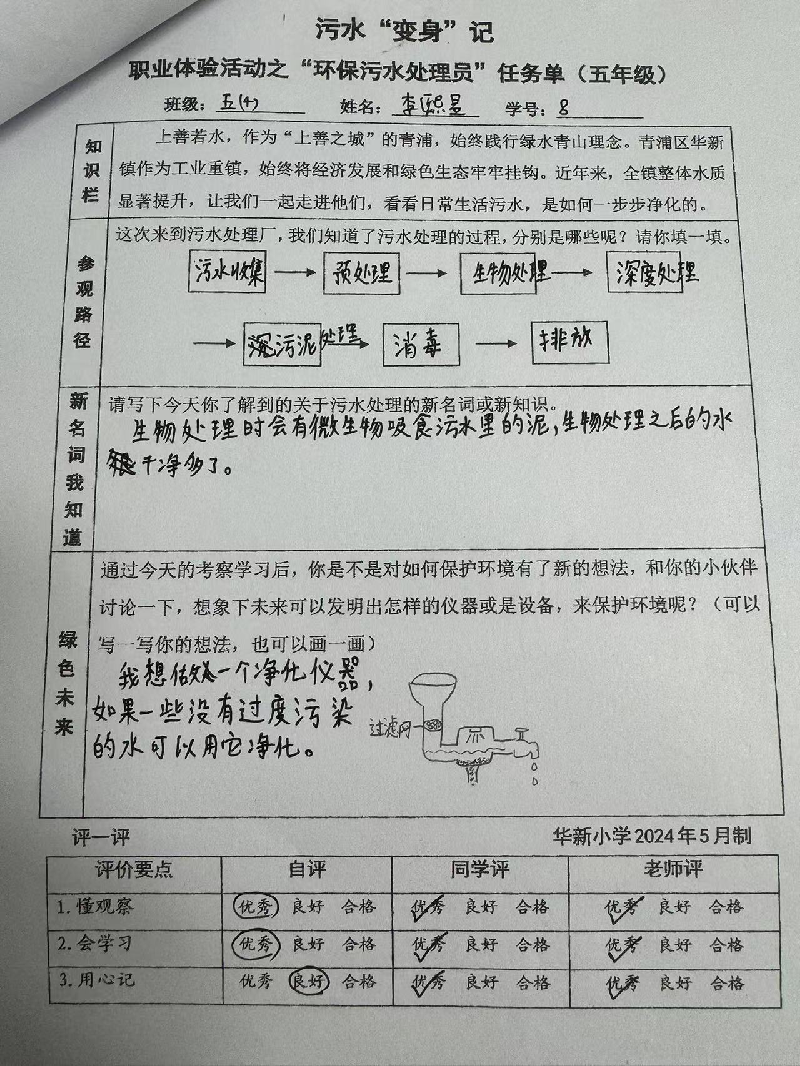 污水“变身”记
职业体验活动之“环保污水处理员”任务单（五年级）
班级：五(4) 姓名：李熙昱 学号：8
知识栏
上善若水，作为“上善之城”的青浦，始终践行绿水青山理念。青浦区华新
镇作为工业重镇，始终将经济发展和绿色生态牢牢挂钩。近年来，全镇整体水质
显著提升，让我们一起走进他们，看看日常生活污水，是如何一步步净化的。
参观路径
这次来到污水处理厂，我们知道了污水处理的过程，分别是哪些呢？请你填一填。
污水收集 预处理 生物处理 深度处理
污泥处理 消毒 排放
新名词我知道
请写下今天你了解到的关于污水处理的新名词或新知识。
生物处理时会有微生物吸食污水里的泥，生物处理之后的水
干净多了。
绿色未来
通过今天的考察学习后，你是不是对如何保护环境有了新的想法，和你的小伙伴
讨论一下，想象下未来可以发明出怎样的仪器或是设备，来保护环境呢？（可以
写一写你的想法，也可以画一画）
我想做一个净化仪器，
如果一些没有过度污染
的水可以用它净化。
过滤网
评一评 华新小学2024年5月制
评价要点 自评 同学评 老师评
1.懂观察 优秀 良好 合格 优秀 良好 合格 优秀 良好 合格
2.会学习 优秀 良好 合格 优秀 良好 合格 优秀 良好 合格
3.用心记 优秀 良好 合格 优秀 良好 合格 优秀 良好 合格